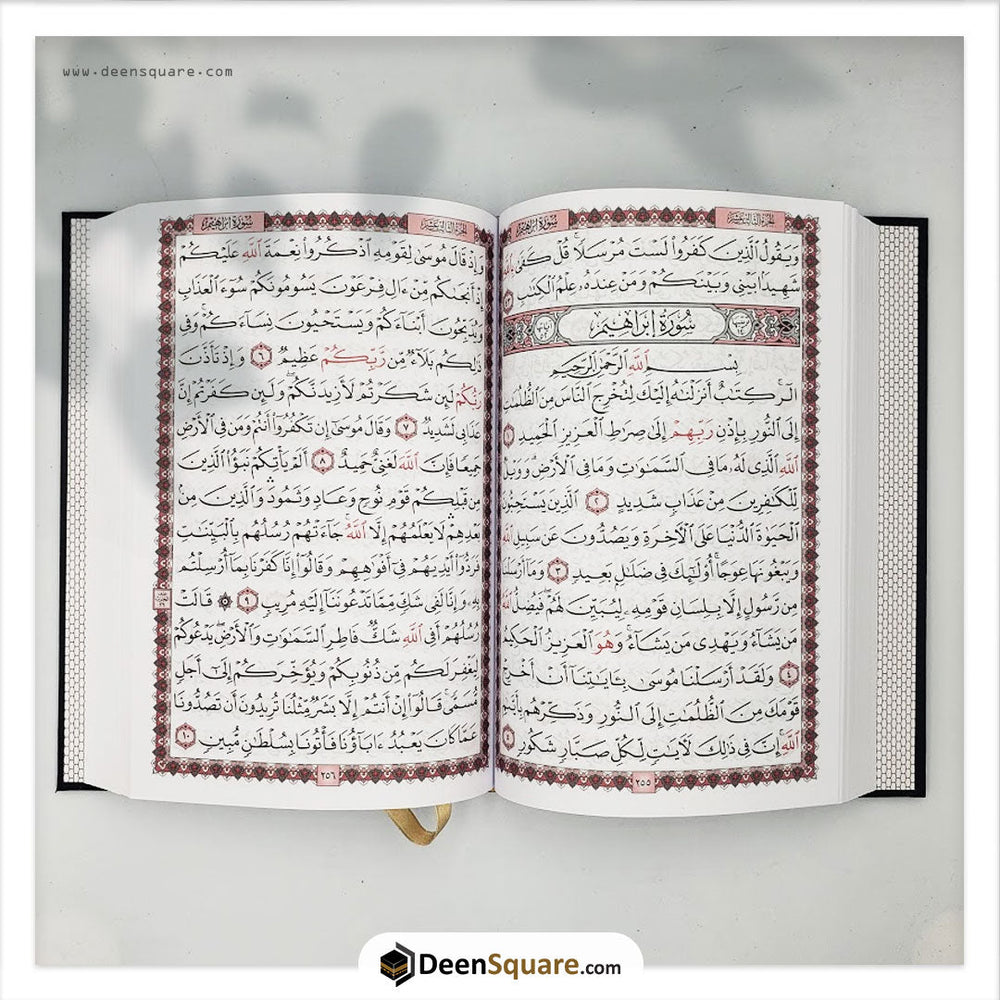 www.deensquare.com
الجزء الثالث عشر
سورة ابراهيم
وَيَقُولُ ٱلَّذِينَ كَفَرُوا۟ لَسْتَ مُرْسَلًا ۚ قُلْ كَفَىٰ بِٱللَّهِ
شَهِيدًۢا بَيْنِى وَبَيْنَكُمْ وَمَنْ عِندَهُۥ عِلْمُ ٱلْكِتَٰبِ ٤٣
سُورَةُ إِبْرَاهِيم
بِسْمِ ٱللَّهِ ٱلرَّحْمَٰنِ ٱلرَّحِيمِ
الٓر ۚ كِتَٰبٌ أَنزَلْنَٰهُ إِلَيْكَ لِتُخْرِجَ ٱلنَّاسَ مِنَ ٱلظُّلُمَٰتِ
إِلَى ٱلنُّورِ بِإِذْنِ رَبِّهِمْ إِلَىٰ صِرَٰطِ ٱلْعَزِيزِ ٱلْحَمِيدِ ١
ٱللَّهِ ٱلَّذِى لَهُۥ مَا فِى ٱلسَّمَٰوَٰتِ وَمَا فِى ٱلْأَرْضِ ۗ وَوَيْلٌ
لِّلْكَٰفِرِينَ مِنْ عَذَابٍ شَدِيدٍ ٢ ٱلَّذِينَ يَسْتَحِبُّونَ
ٱلْحَيَوٰةَ ٱلدُّنْيَا عَلَى ٱلْءَاخِرَةِ وَيَصُدُّونَ عَن سَبِيلِ ٱللَّهِ
وَيَبْغُونَهَا عِوَجًا ۚ أُو۟لَٰٓئِكَ فِى ضَلَٰلٍۭ بَعِيدٍ ٣ وَمَآ أَرْسَلْنَا
مِن رَّسُولٍ إِلَّا بِلِسَانِ قَوْمِهِۦ لِيُبَيِّنَ لَهُمْ ۖ فَيُضِلُّ ٱللَّهُ
مَن يَشَآءُ وَيَهْدِى مَن يَشَآءُ ۚ وَهُوَ ٱلْعَزِيزُ ٱلْحَكِيمُ
٤ وَلَقَدْ أَرْسَلْنَا مُوسَىٰ بِـَٔايَٰتِنَآ أَنْ أَخْرِجْ
قَوْمَكَ مِنَ ٱلظُّلُمَٰتِ إِلَى ٱلنُّورِ وَذَكِّرْهُم بِأَيَّىٰمِ
ٱللَّهِ ۚ إِنَّ فِى ذَٰلِكَ لَءَايَٰتٍ لِّكُلِّ صَبَّارٍ شَكُورٍ ٥
٢٥٥
الجزء الثالث عشر
سورة ابراهيم
وَإِذْ قَالَ مُوسَىٰ لِقَوْمِهِ ٱذْكُرُوا۟ نِعْمَةَ ٱللَّهِ عَلَيْكُمْ
إِذْ أَنجَىٰكُم مِّنْ ءَالِ فِرْعَوْنَ يَسُومُونَكُمْ سُوٓءَ ٱلْعَذَابِ
وَيُذَبِّحُونَ أَبْنَآءَكُمْ وَيَسْتَحْيُونَ نِسَآءَكُمْ ۚ وَفِى
ذَٰلِكُم بَلَآءٌ مِّن رَّبِّكُمْ عَظِيمٌ ٦ وَإِذْ تَأَذَّنَ
رَبُّكُمْ لَئِن شَكَرْتُمْ لَأَزِيدَنَّكُمْ ۖ وَلَئِن كَفَرْتُمْ إِنَّ
عَذَابِى لَشَدِيدٌ ٧ وَقَالَ مُوسَىٰٓ إِن تَكْفُرُوٓا۟ أَنتُمْ وَمَن فِى ٱلْأَرْضِ
جَمِيعًا فَإِنَّ ٱللَّهَ لَغَنِىٌّ حَمِيدٌ ٨ أَلَمْ يَأْتِكُمْ نَبَؤُا۟ ٱلَّذِينَ
مِن قَبْلِكُمْ قَوْمِ نُوحٍ وَعَادٍ وَثَمُودَ ۛ وَٱلَّذِينَ مِنۢ
بَعْدِهِمْ ۛ لَا يَعْلَمُهُمْ إِلَّا ٱللَّهُ ۚ جَآءَتْهُمْ رُسُلُهُم بِٱلْبَيِّنَٰتِ
فَرَدُّوٓا۟ أَيْدِيَهُمْ فِىٓ أَفْوَٰهِهِمْ وَقَالُوٓا۟ إِنَّا كَفَرْنَا بِمَآ أُرْسِلْتُم
بِهِۦ وَإِنَّا لَفِى شَكٍّ مِّمَّا تَدْعُونَنَآ إِلَيْهِ مُرِيبٍ ٩ ۞ قَالَتْ
رُسُلُهُمْ أَفِى ٱللَّهِ شَكٌّ فَاطِرِ ٱلسَّمَٰوَٰتِ وَٱلْأَرْضِ ۖ يَدْعُوكُمْ
لِيَغْفِرَ لَكُم مِّن ذُنُوبِكُمْ وَيُؤَخِّرَكُمْ إِلَىٰٓ أَجَلٍ
مُّسَمًّى ۚ قَالُوٓا۟ إِنْ أَنتُمْ إِلَّا بَشَرٌ مِّثْلُنَا تُرِيدُونَ أَن تَصُدُّونَا
عَمَّا كَانَ يَعْبُدُ ءَابَآؤُنَا فَأْتُونَا بِسُلْطَٰنٍ مُّبِينٍ ١٠
٢٥٦
DeenSquare.com